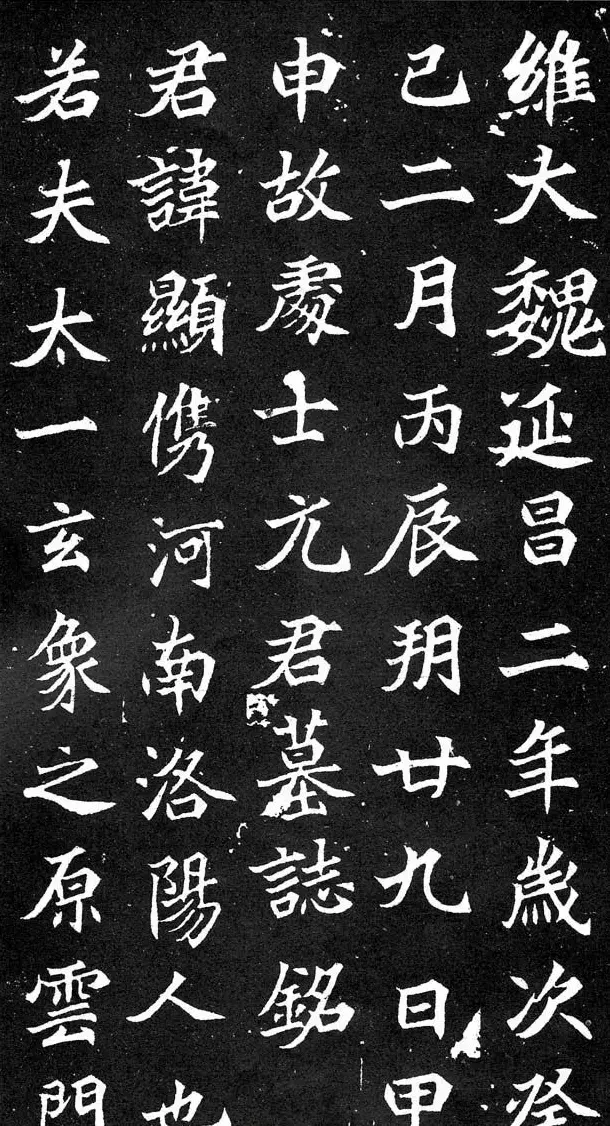 維大魏延昌二年歲次癸
巳二月丙辰玥廿九日甲
申故處士元君墓誌銘
君諱顯儁河南洛陽人也
若夫太一玄象之原雲門